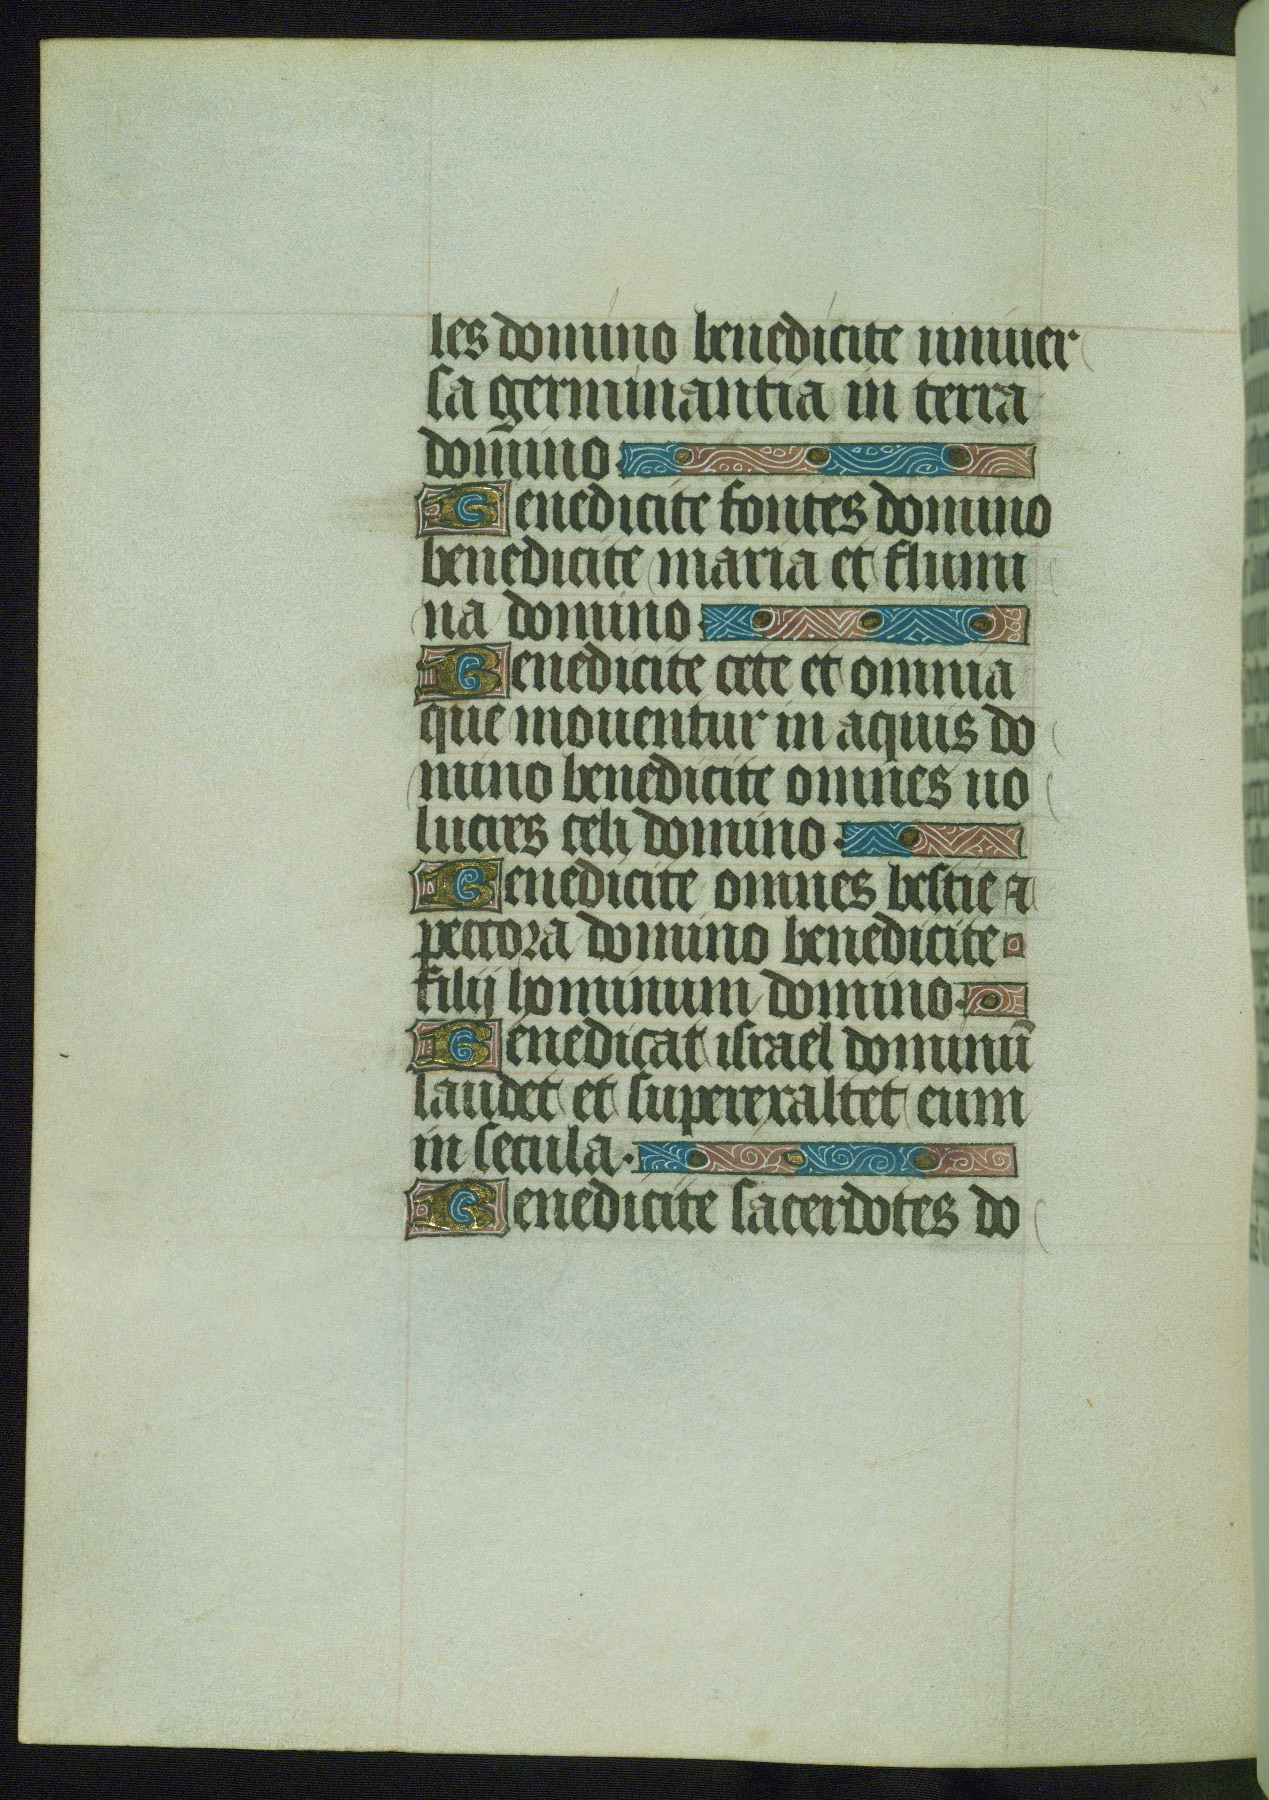 les domino benedicite univer
sa germinantia in terra
domino
Benedicite fontes domino
benedicite maria et flumi
na domino
Benedicite cete et omnia
que moventur in aquis do
mino benedicite omnes vo
lucres celi domino.
Benedicite omnes bestie ⁊
peccora domino benedicite
filij hominum domino.
Benedicat israel dominū
laudet et superexaltet eum
in secula.
Benedicite sacerdotes do